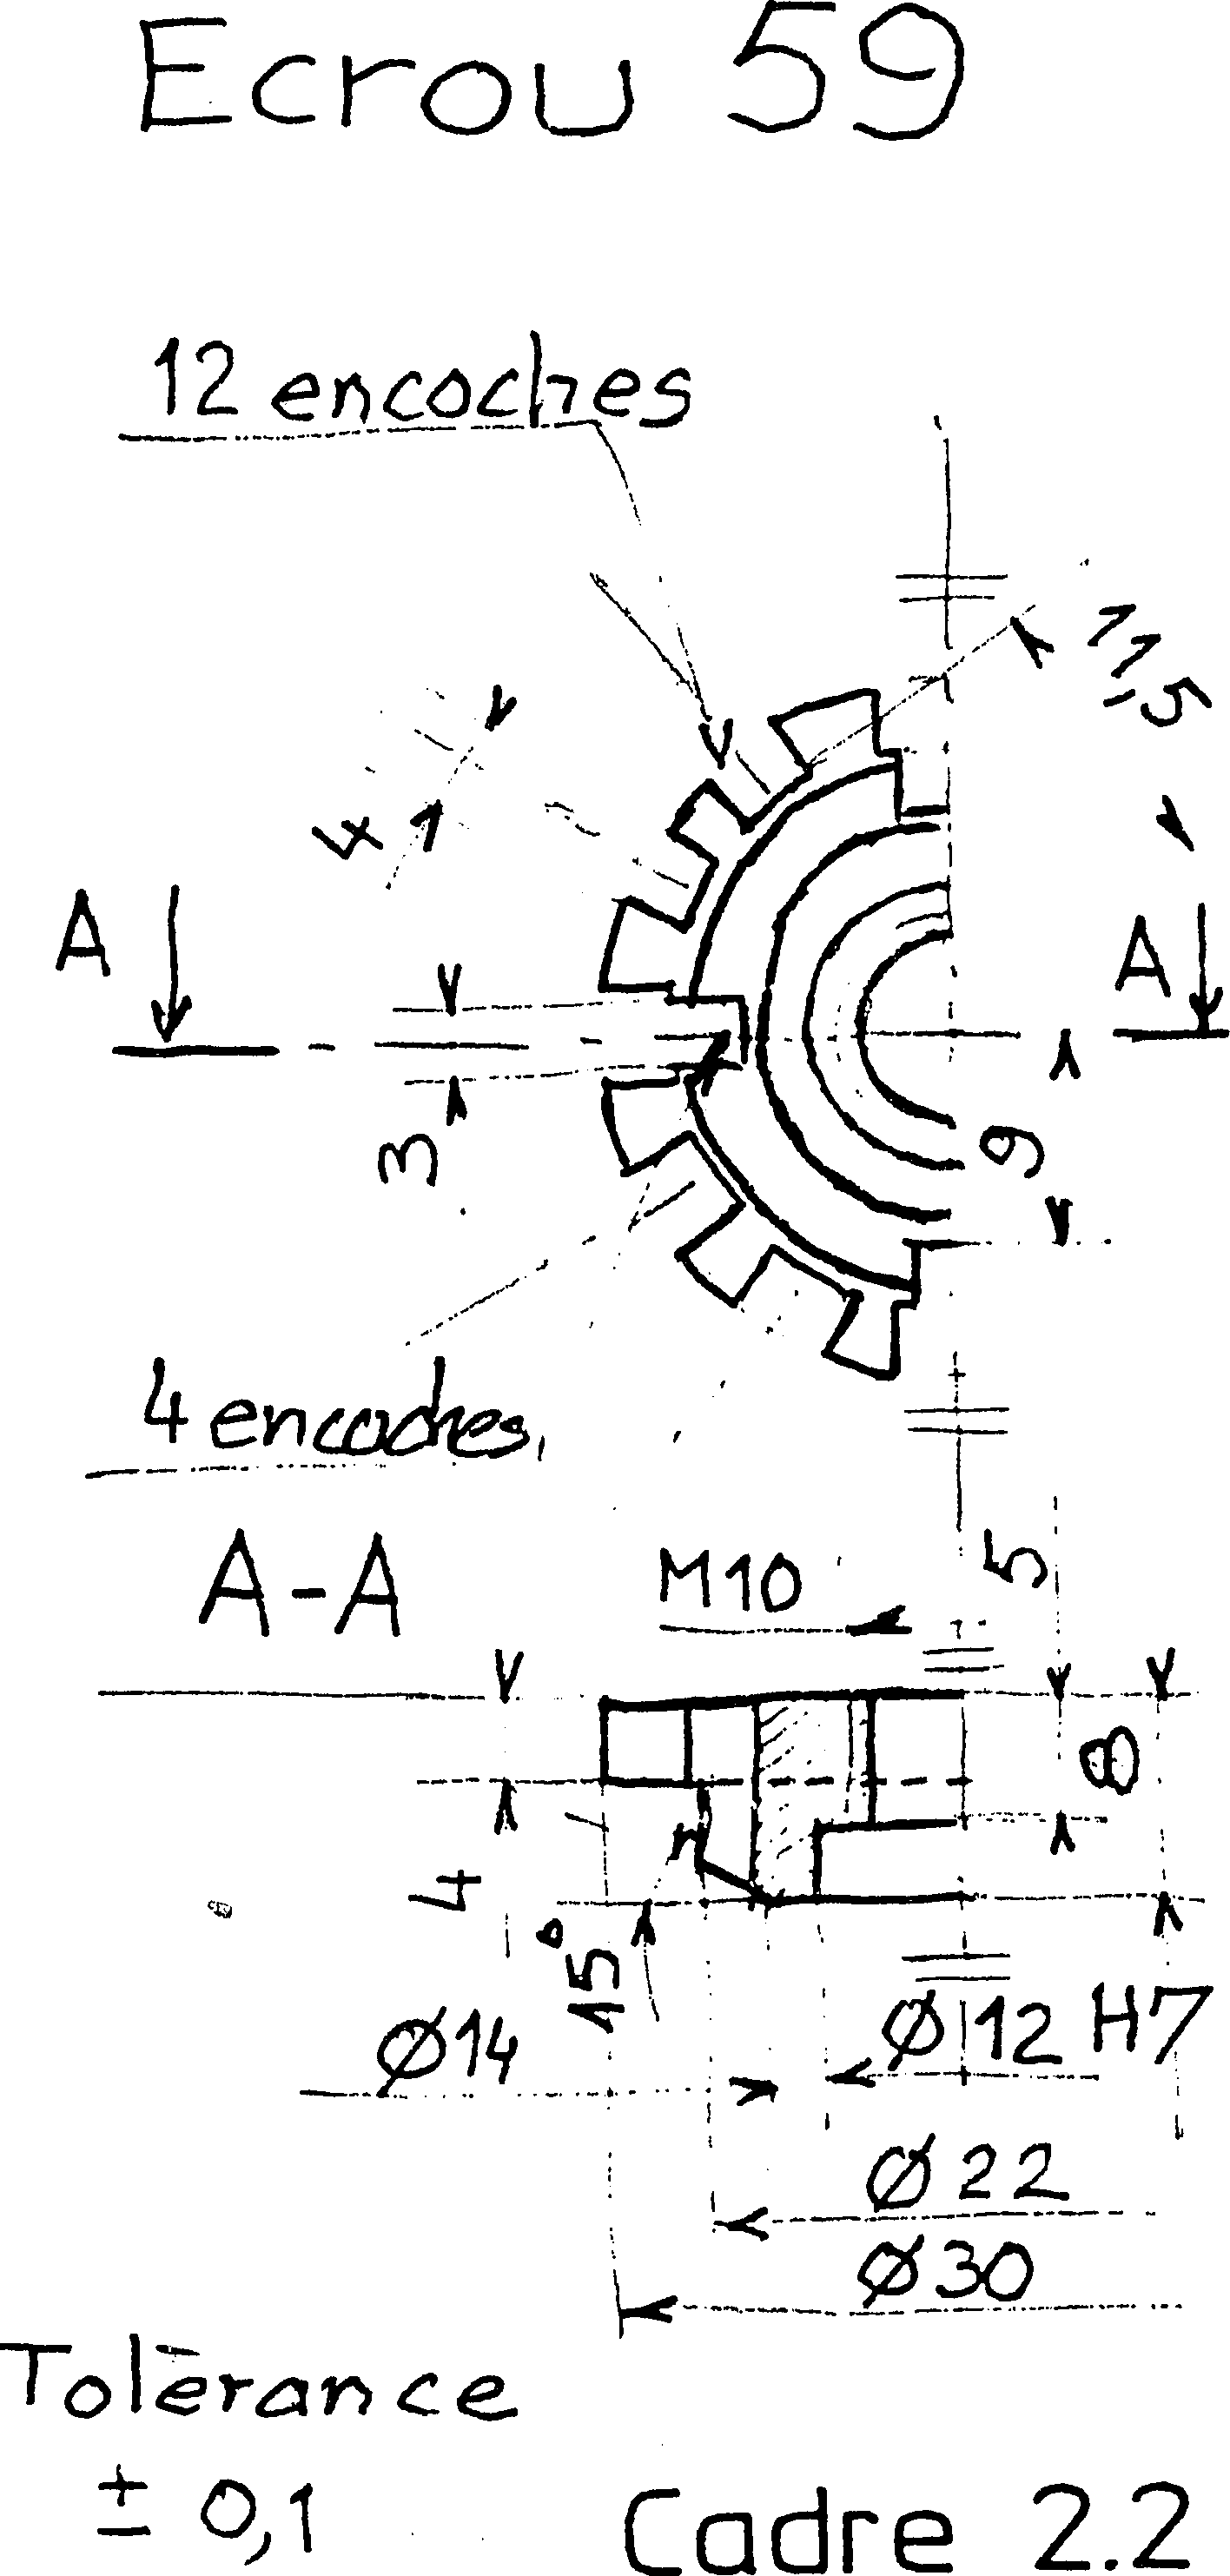 Ecrou 59
12 encoches
11,5
4
A
A
3
9
4 encoches
A-A
M10
5
8
4
15°
Ø14
Ø12 H7
Ø22
Ø30
Tolérance
± 0,1
Cadre 2.2